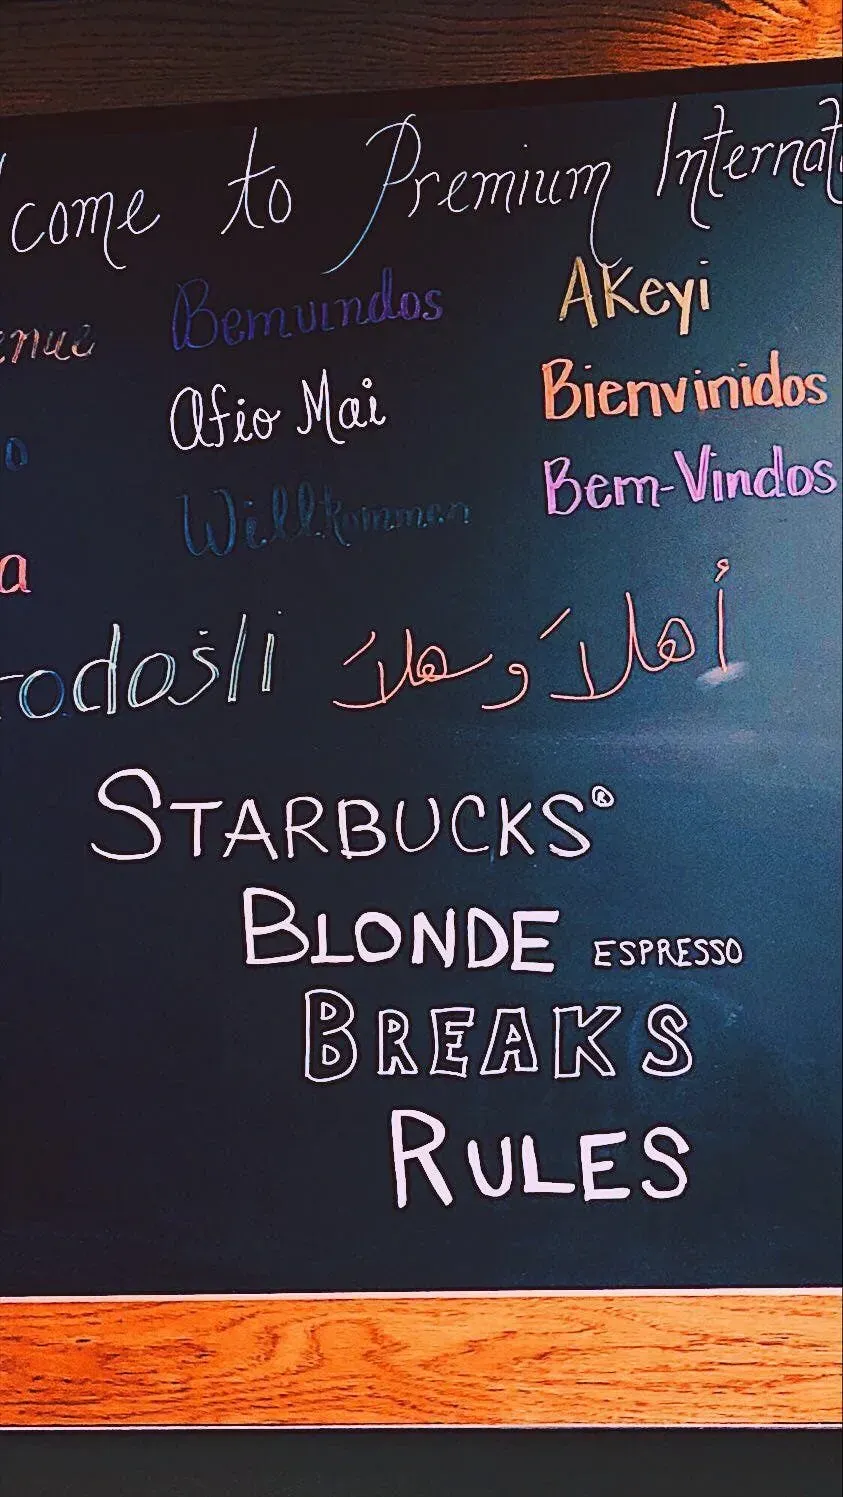 lcome to Premium Internat
enue Bemvindos Akeyi
o Afio Mai Bienvinidos
Willkommen Bem-Vindos
a
rodošli أهلاَ وهلاَ
STARBUCKS®
BLONDE ESPRESSO
BREAKS
RULES